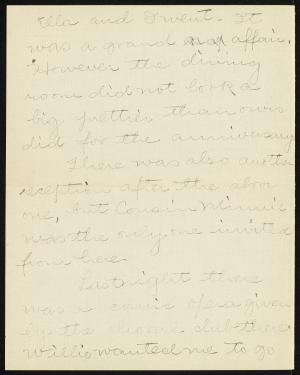 Ella and I went. It
was a grand affair.
However the dining
room did not look a
big prettier than ours
did for the anniversary
There was also another
reception after the above
one, but Cousin Minnie
was the only one invited
from here.
Last night there
was a comic opera given
by the club there
Willie wanted me to go